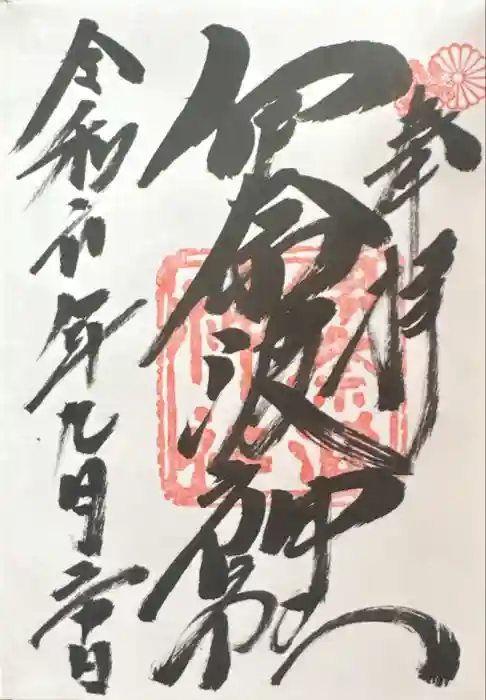 奉拝
伊奈波神社
令和元年九月日